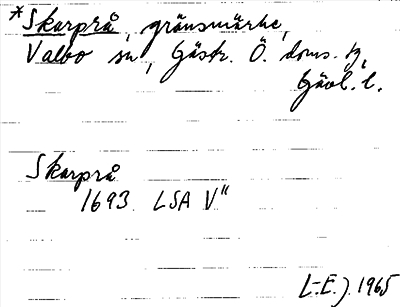 *Skarprå, gränsmärke,
Valbo sn, Gästr. Ö. doms. tg,
Gävl. l.
Skarprå
1693 LSA V"
L-E. J. 1965